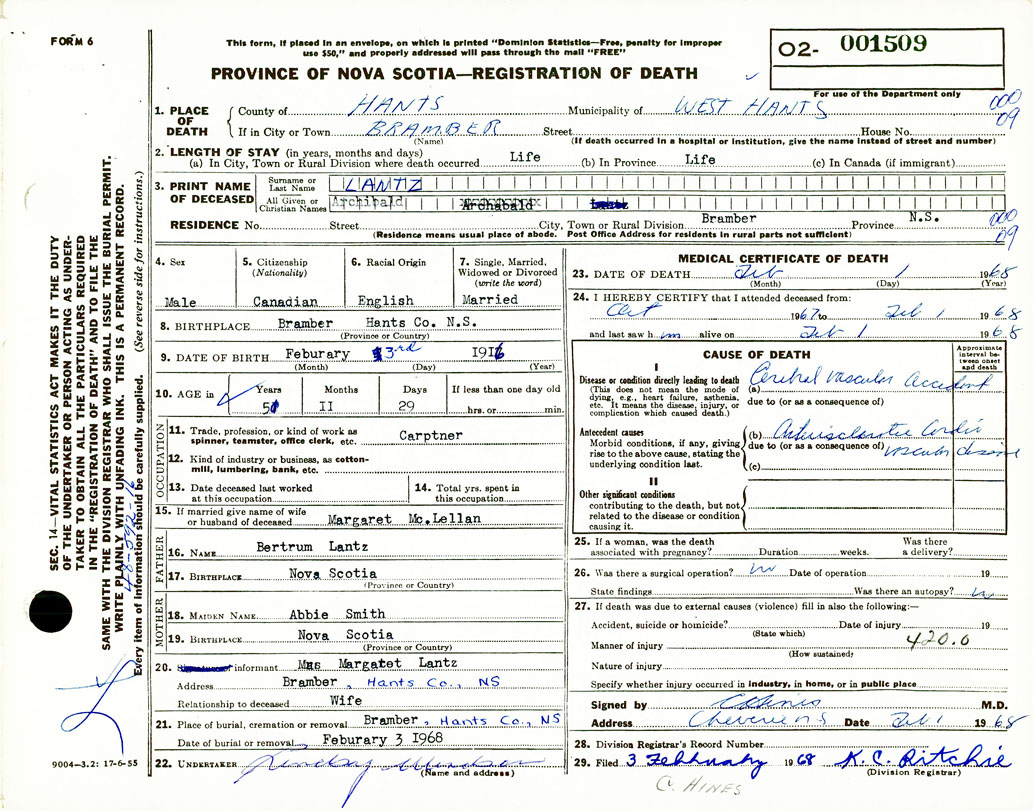 FORM 6
This form, if placed in an envelope, on which is printed "Dominion Statistics—Free, penalty for improper
use $50," and properly addressed will pass through the mail "FREE"
O2- 001509
PROVINCE OF NOVA SCOTIA—REGISTRATION OF DEATH
For use of the Department only
000
09
1. PLACE OF DEATH
County of HANTS Municipality of WEST HANTS
If in City or Town BRAMBER Street House No.
(Name) (If death occurred in a hospital or institution, give the name instead of street and number)
2. LENGTH OF STAY (in years, months and days)
(a) In City, Town or Rural Division where death occurred Life (b) In Province Life (c) In Canada (if immigrant)
3. PRINT NAME OF DECEASED
Surname or Last Name LANTZ
All Given or Christian Names Archibald Archabald Lantz
RESIDENCE No. Street City, Town or Rural Division Bramber Province N.S.
000
09
(Residence means usual place of abode. Post Office Address for residents in rural parts not sufficient)
4. Sex
Male
5. Citizenship
(Nationality)
Canadian
6. Racial Origin
English
7. Single, Married,
Widowed or Divorced
(write the word)
Married
8. BIRTHPLACE Bramber Hants Co. N.S.
(Province or Country)
9. DATE OF BIRTH Feburary 3rd 1916
(Month) (Day) (Year)
10. AGE in
Years Months Days If less than one day old
51 II 29 hrs. or min.
OCCUPATION
11. Trade, profession, or kind of work as
spinner, teamster, office clerk, etc. Carptner
12. Kind of industry or business, as cotton-
mill, lumbering, bank, etc.
13. Date deceased last worked
at this occupation
14. Total yrs. spent in
this occupation
15. If married give name of wife
or husband of deceased Margaret Mc.Lellan
FATHER
16. NAME Bertrum Lantz
17. BIRTHPLACE Nova Scotia
(Province or Country)
MOTHER
18. MAIDEN NAME Abbie Smith
19. BIRTHPLACE Nova Scotia
(Province or Country)
20. informant Mrs Margatet Lantz
Address Bramber, Hants Co., NS
Relationship to deceased Wife
21. Place of burial, cremation or removal Bramber, Hants Co., NS
Date of burial or removal Feburary 3 1968
22. UNDERTAKER Lindsay Windsor
(Name and address)
MEDICAL CERTIFICATE OF DEATH
23. DATE OF DEATH Feb 1 1968
(Month) (Day) (Year)
24. I HEREBY CERTIFY that I attended deceased from:
Oct 1967 to Feb 1 1968
and last saw him alive on Feb 1 1968
CAUSE OF DEATH
Approximate
interval be-
tween onset
and death
I
Disease or condition directly leading to death
(This does not mean the mode of
dying, e.g., heart failure, asthenia,
etc. It means the disease, injury, or
complication which caused death.)
(a) Cerebral Vascular Accident
due to (or as a consequence of)
Antecedent causes
Morbid conditions, if any, giving
rise to the above cause, stating the
underlying condition last.
(b) Arteriosclerotic Cardio
due to (or as a consequence of) vascular disease
(c)
II
Other significant conditions
contributing to the death, but not
related to the disease or condition
causing it.
25. If a woman, was the death
associated with pregnancy? Duration weeks. Was there
a delivery?
26. Was there a surgical operation? no Date of operation 19
State findings Was there an autopsy? no
27. If death was due to external causes (violence) fill in also the following:—
Accident, suicide or homicide? Date of injury 19
(State which)
Manner of injury 420.0
(How sustained)
Nature of injury
Specify whether injury occurred in industry, in home, or in public place
Signed by C Hines M.D.
Address Cheverie NS Date Feb 1 1968
28. Division Registrar's Record Number
29. Filed 3 February 1968 K. C. Ritchie
(Division Registrar)
C. HINES
SEC. 14—VITAL STATISTICS ACT MAKES IT THE DUTY
OF THE UNDERTAKER OR PERSON ACTING AS UNDER-
TAKER TO OBTAIN ALL THE PARTICULARS REQUIRED
IN THE "REGISTRATION OF DEATH" AND TO FILE THE
SAME WITH THE DIVISION REGISTRAR WHO SHALL ISSUE THE BURIAL PERMIT.
WRITE PLAINLY WITH UNFADING INK. THIS IS A PERMANENT RECORD.
48-592-16
Every item of information should be carefully supplied. (See reverse side for instructions.)
9004-3.2: 17-6-55